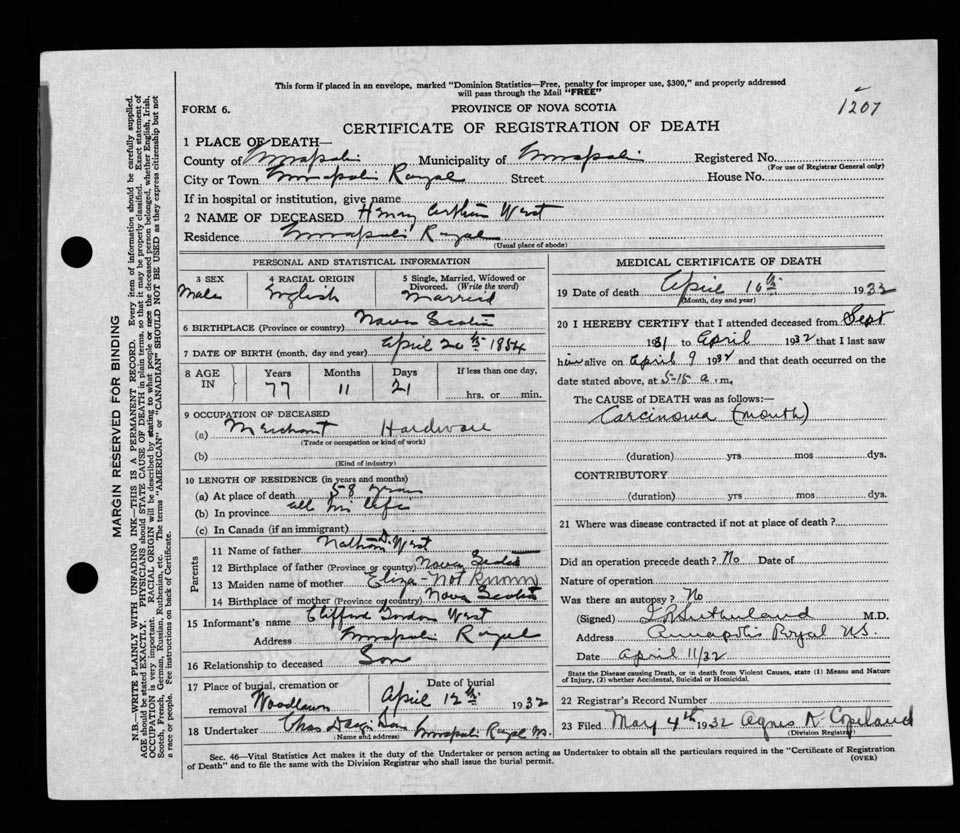 This form if placed in an envelope, marked "Dominion Statistics—Free, penalty for improper use, $300," and properly addressed
will pass through the Mail "FREE"
FORM 6.
PROVINCE OF NOVA SCOTIA
1207
CERTIFICATE OF REGISTRATION OF DEATH
1 PLACE OF DEATH—
County of Annapolis Municipality of Annapolis Registered No.
(For use of Registrar General only)
City or Town Annapolis Royal Street House No.
If in hospital or institution, give name
2 NAME OF DECEASED Henry Arthur West
Residence Annapolis Royal
(Usual place of abode)
PERSONAL AND STATISTICAL INFORMATION
3 SEX Male
4 RACIAL ORIGIN English
5 Single, Married, Widowed or Divorced. (Write the word) Married
6 BIRTHPLACE (Province or country) Nova Scotia
7 DATE OF BIRTH (month, day and year) April 20th 1854
8 AGE IN Years 77 Months 11 Days 21 If less than one day, hrs. or min.
9 OCCUPATION OF DECEASED
(a) Merchant Hardware
(Trade or occupation or kind of work)
(b)
(Kind of industry)
10 LENGTH OF RESIDENCE (in years and months)
(a) At place of death 58 years
(b) In province all his life
(c) In Canada (if an immigrant)
Parents
11 Name of father Nathan D. West
12 Birthplace of father (Province or country) Nova Scotia
13 Maiden name of mother Eliza - Not Known
14 Birthplace of mother (Province or country) Nova Scotia
15 Informant's name Clifford Gordon West
Address Annapolis Royal
16 Relationship to deceased Son
17 Place of burial, cremation or removal Woodlawn
Date of burial April 12th 1932
18 Undertaker Chas Annapolis Royal NS.
Name and address)
MEDICAL CERTIFICATE OF DEATH
19 Date of death April 10th 1932
(Month, day and year)
20 I HEREBY CERTIFY that I attended deceased from Sept
1931 to April 1932 that I last saw
him alive on April 9 1932 and that death occurred on the
date stated above, at 5-15 a.m.
The CAUSE of DEATH was as follows:—
Carcinoma (mouth)
(duration) yrs mos dys.
CONTRIBUTORY
(duration) yrs mos dys.
21 Where was disease contracted if not at place of death?
Did an operation precede death? No Date of
Nature of operation
Was there an autopsy? No
(Signed) Sutherland M.D.
Address Annapolis Royal NS.
Date April 11/32
State the Disease causing Death, or in death from Violent Causes, state (1) Means and Nature
of Injury, (2) whether Accidental, Suicidal or Homicidal.
22 Registrar's Record Number
23 Filed May 4th 1932 Agnes K. Copeland
(Division Registrar)
Sec. 46—Vital Statistics Act makes it the duty of the Undertaker or person acting as Undertaker to obtain all the particulars required in the "Certificate of Registration
of Death" and to file the same with the Division Registrar who shall issue the burial permit.
(OVER)
MARGIN RESERVED FOR BINDING
N.B.—WRITE PLAINLY WITH UNFADING INK—THIS IS A PERMANENT RECORD. Every item of information should be carefully supplied.
AGE should be stated EXACTLY. PHYSICIANS should STATE CAUSE OF DEATH in plain terms, so that it may be properly classified. Exact statement of
OCCUPATION is very important. RACIAL ORIGIN will be described by stating to what people or race the deceased person belonged, whether English, Irish,
Scotch, French, German, Russian, Ruthenian, etc. The terms "AMERICAN" or "CANADIAN" SHOULD NOT BE USED as they express citizenship but not
a race or people. See instructions on back of Certificate.